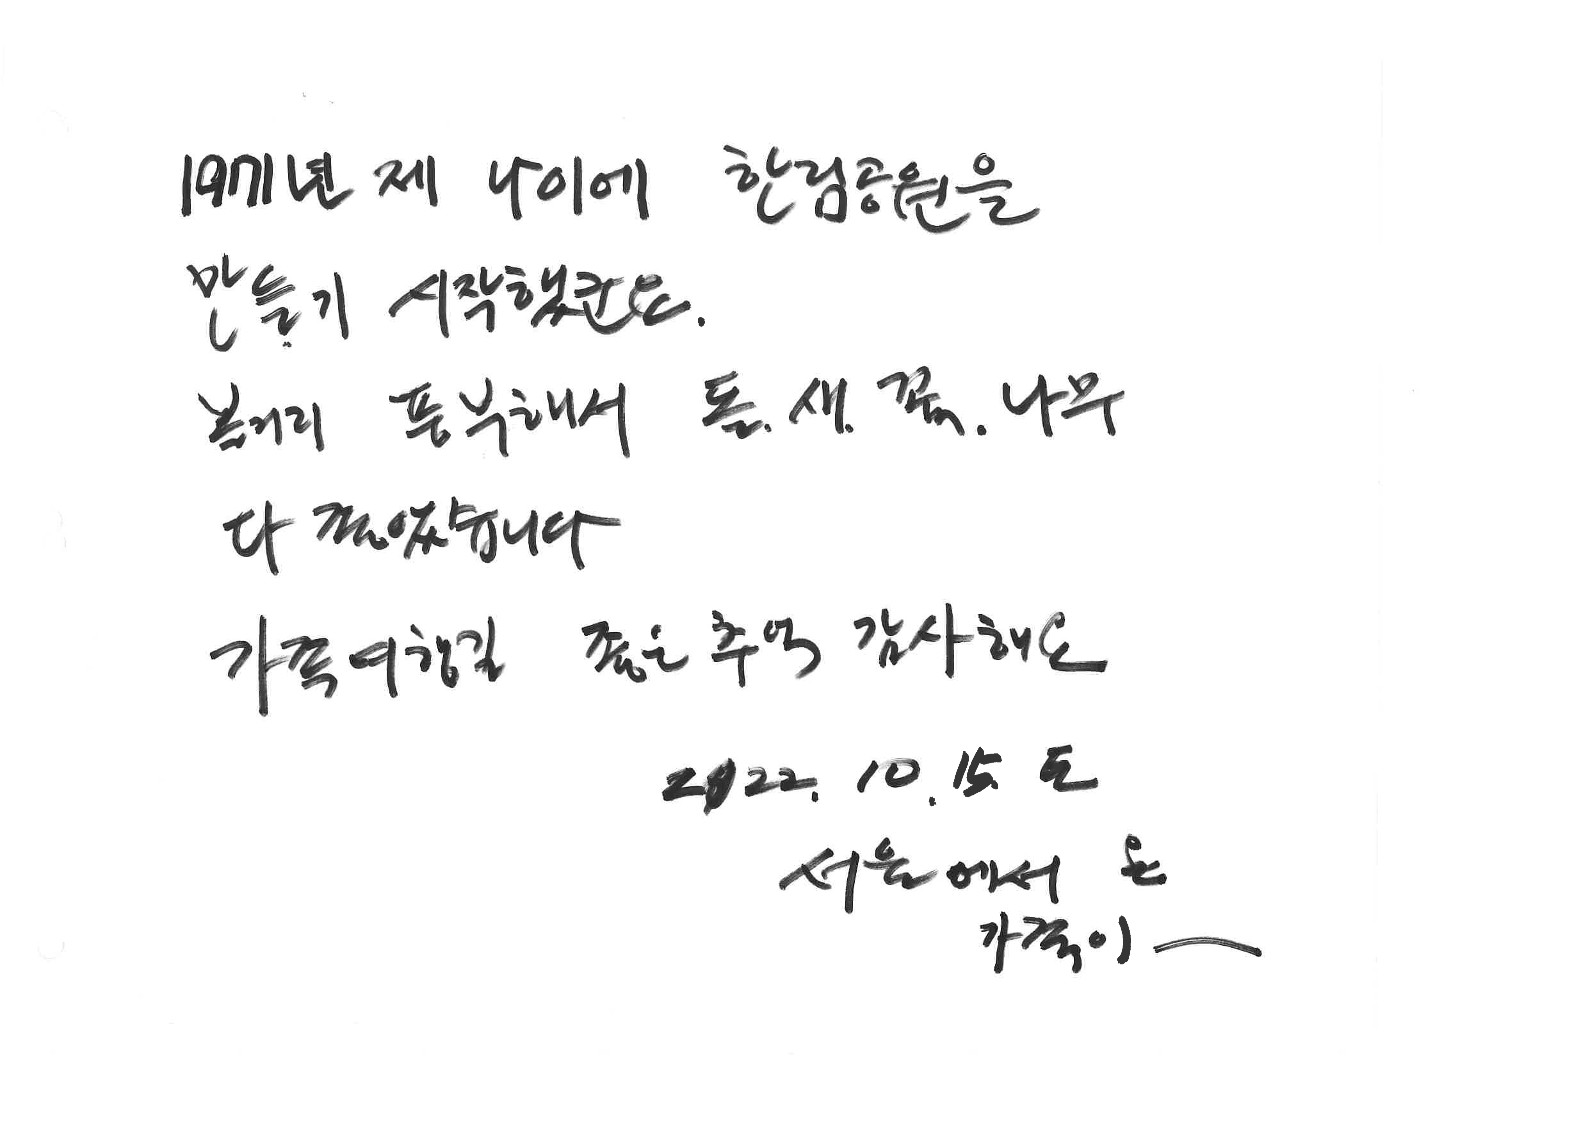 1971년 제 나이에 한림공원을
만들기 시작했군요.
볼거리 풍부해서 돌.새.꽃.나무
다 좋았습니다
가족여행길 좋은 추억 감사해요
2022. 10. 15. 토
서울에서 온
가족이